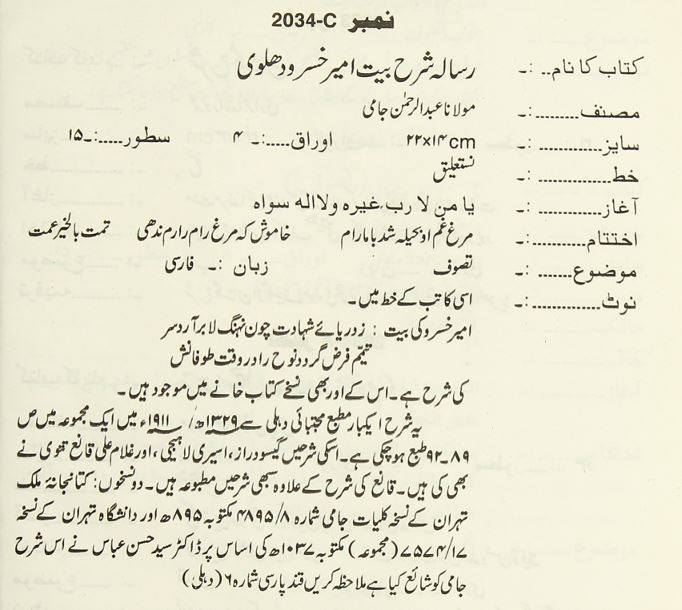 نمبر 2034-C
کتاب کا نام.. :۔ رسالہ شرح بیت امیر خسرو دھلوی
مصنف........:۔ مولانا عبدالرحمٰن جامی
سایز..........:۔ ۲۲x۱۴cm اوراق.....:۔ ۴ سطور.....:۔۱۵
خط............:۔ نستعلیق
آغاز...........:۔ یا من لا رب غیره ولا اله سواه
اختتام........:۔ مرغ غم او بحیله شد با ما رام خاموش که مرغ رام را رم ندهی تمت بالخیر عمت
موضوع......:۔ تصوف زبان :۔ فارسی
نوٹ..........:۔ اسی کاتب کے خط میں۔
امیر خسرو کی بیت : ز دریائے شہادت چون نہنگ لا بر آرد سر
تیمم فرض گردد نوح را در وقت طوفانش
کی شرح ہے۔ اس کے اور بھی نسخے کتاب خانے میں موجود ہیں۔
یہ شرح ایکبار مطبع مجتبائی دہلی سے ۱۳۲۹ھ/ ۱۹۱۱ء میں ایک مجموعہ میں ص
۸۹۔۹۲ طبع ہو چکی ہے۔ اسکی شرحیں گیسودراز، اسیری لاہیجی، اور غلام علی قانع تتوی نے
بھی کی ہیں۔ قانع کی شرح کے علاوہ سبھی شرحیں مطبوعہ ہیں۔ دو نسخوں: کتابخانۂ ملک
تہران کے نسخہ کلیات جامی شمارہ ۴۸۹۵/۸ مکتوبہ ۸۹۵ھ اور دانشگاہ تہران کے نسخہ
۷۵۷۴/۱۷ (مجموعہ) مکتوبہ ۱۰۳۷ھ کی اساس پر ڈاکٹر سید حسن عباس نے اس شرح
جامی کو شائع کیا ہے ملاحظہ کریں قند پارسی شمارہ ۶ (دہلی)